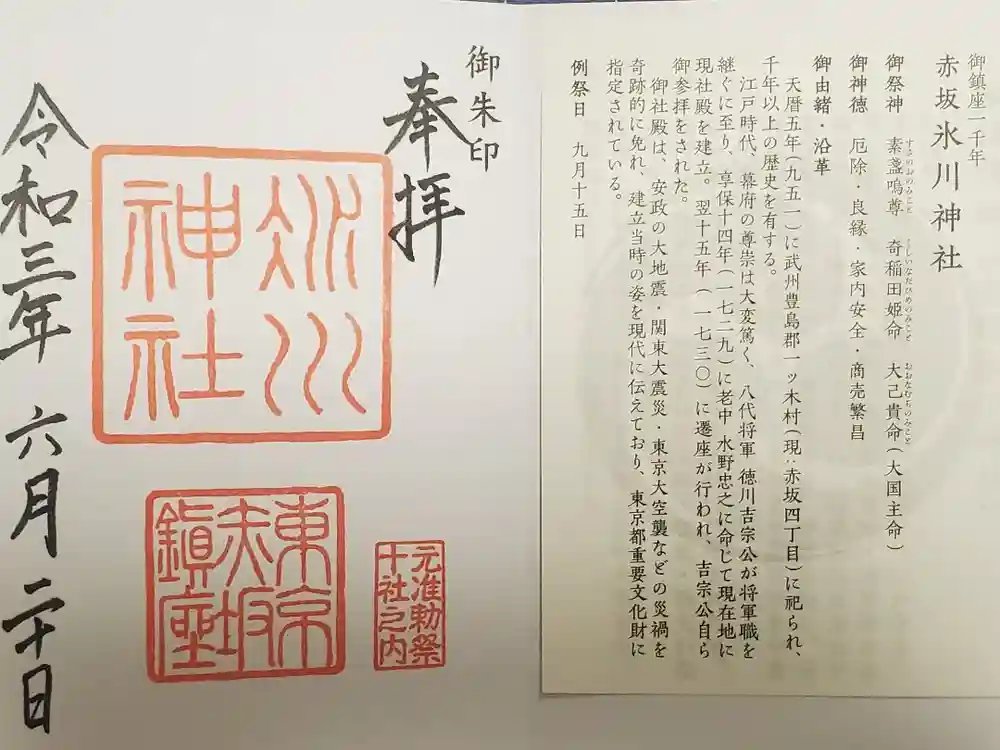 御鎮座一千年
赤坂氷川神社
御祭神 素盞嗚尊 奇稲田姫命 大己貴命(大国主命)
すさのおのみこと くしいなだひめのみこと おおなむぢのみこと
御神徳 厄除・良縁・家内安全・商売繁昌
御由緒・沿革
天暦五年(九五一)に武州豊島郡一ッ木村(現:赤坂四丁目)に祀られ、
千年以上の歴史を有する。
江戸時代、幕府の尊崇は大変篤く、八代将軍 徳川吉宗公が将軍職を
継ぐに至り、享保十四年(一七二九)に老中 水野忠之に命じて現在地に
現社殿を建立。翌十五年(一七三〇)に遷座が行われ、吉宗公自ら
御参拝をされた。
御社殿は、安政の大地震・関東大震災・東京大空襲などの災禍を
奇跡的に免れ、建立当時の姿を現代に伝えており、東京都重要文化財に
指定されている。
例祭日 九月十五日
御朱印
奉拝
氷川
神社
東京
赤坂
鎮座
元准勅祭
十社之内
令和三年 六月 二十日